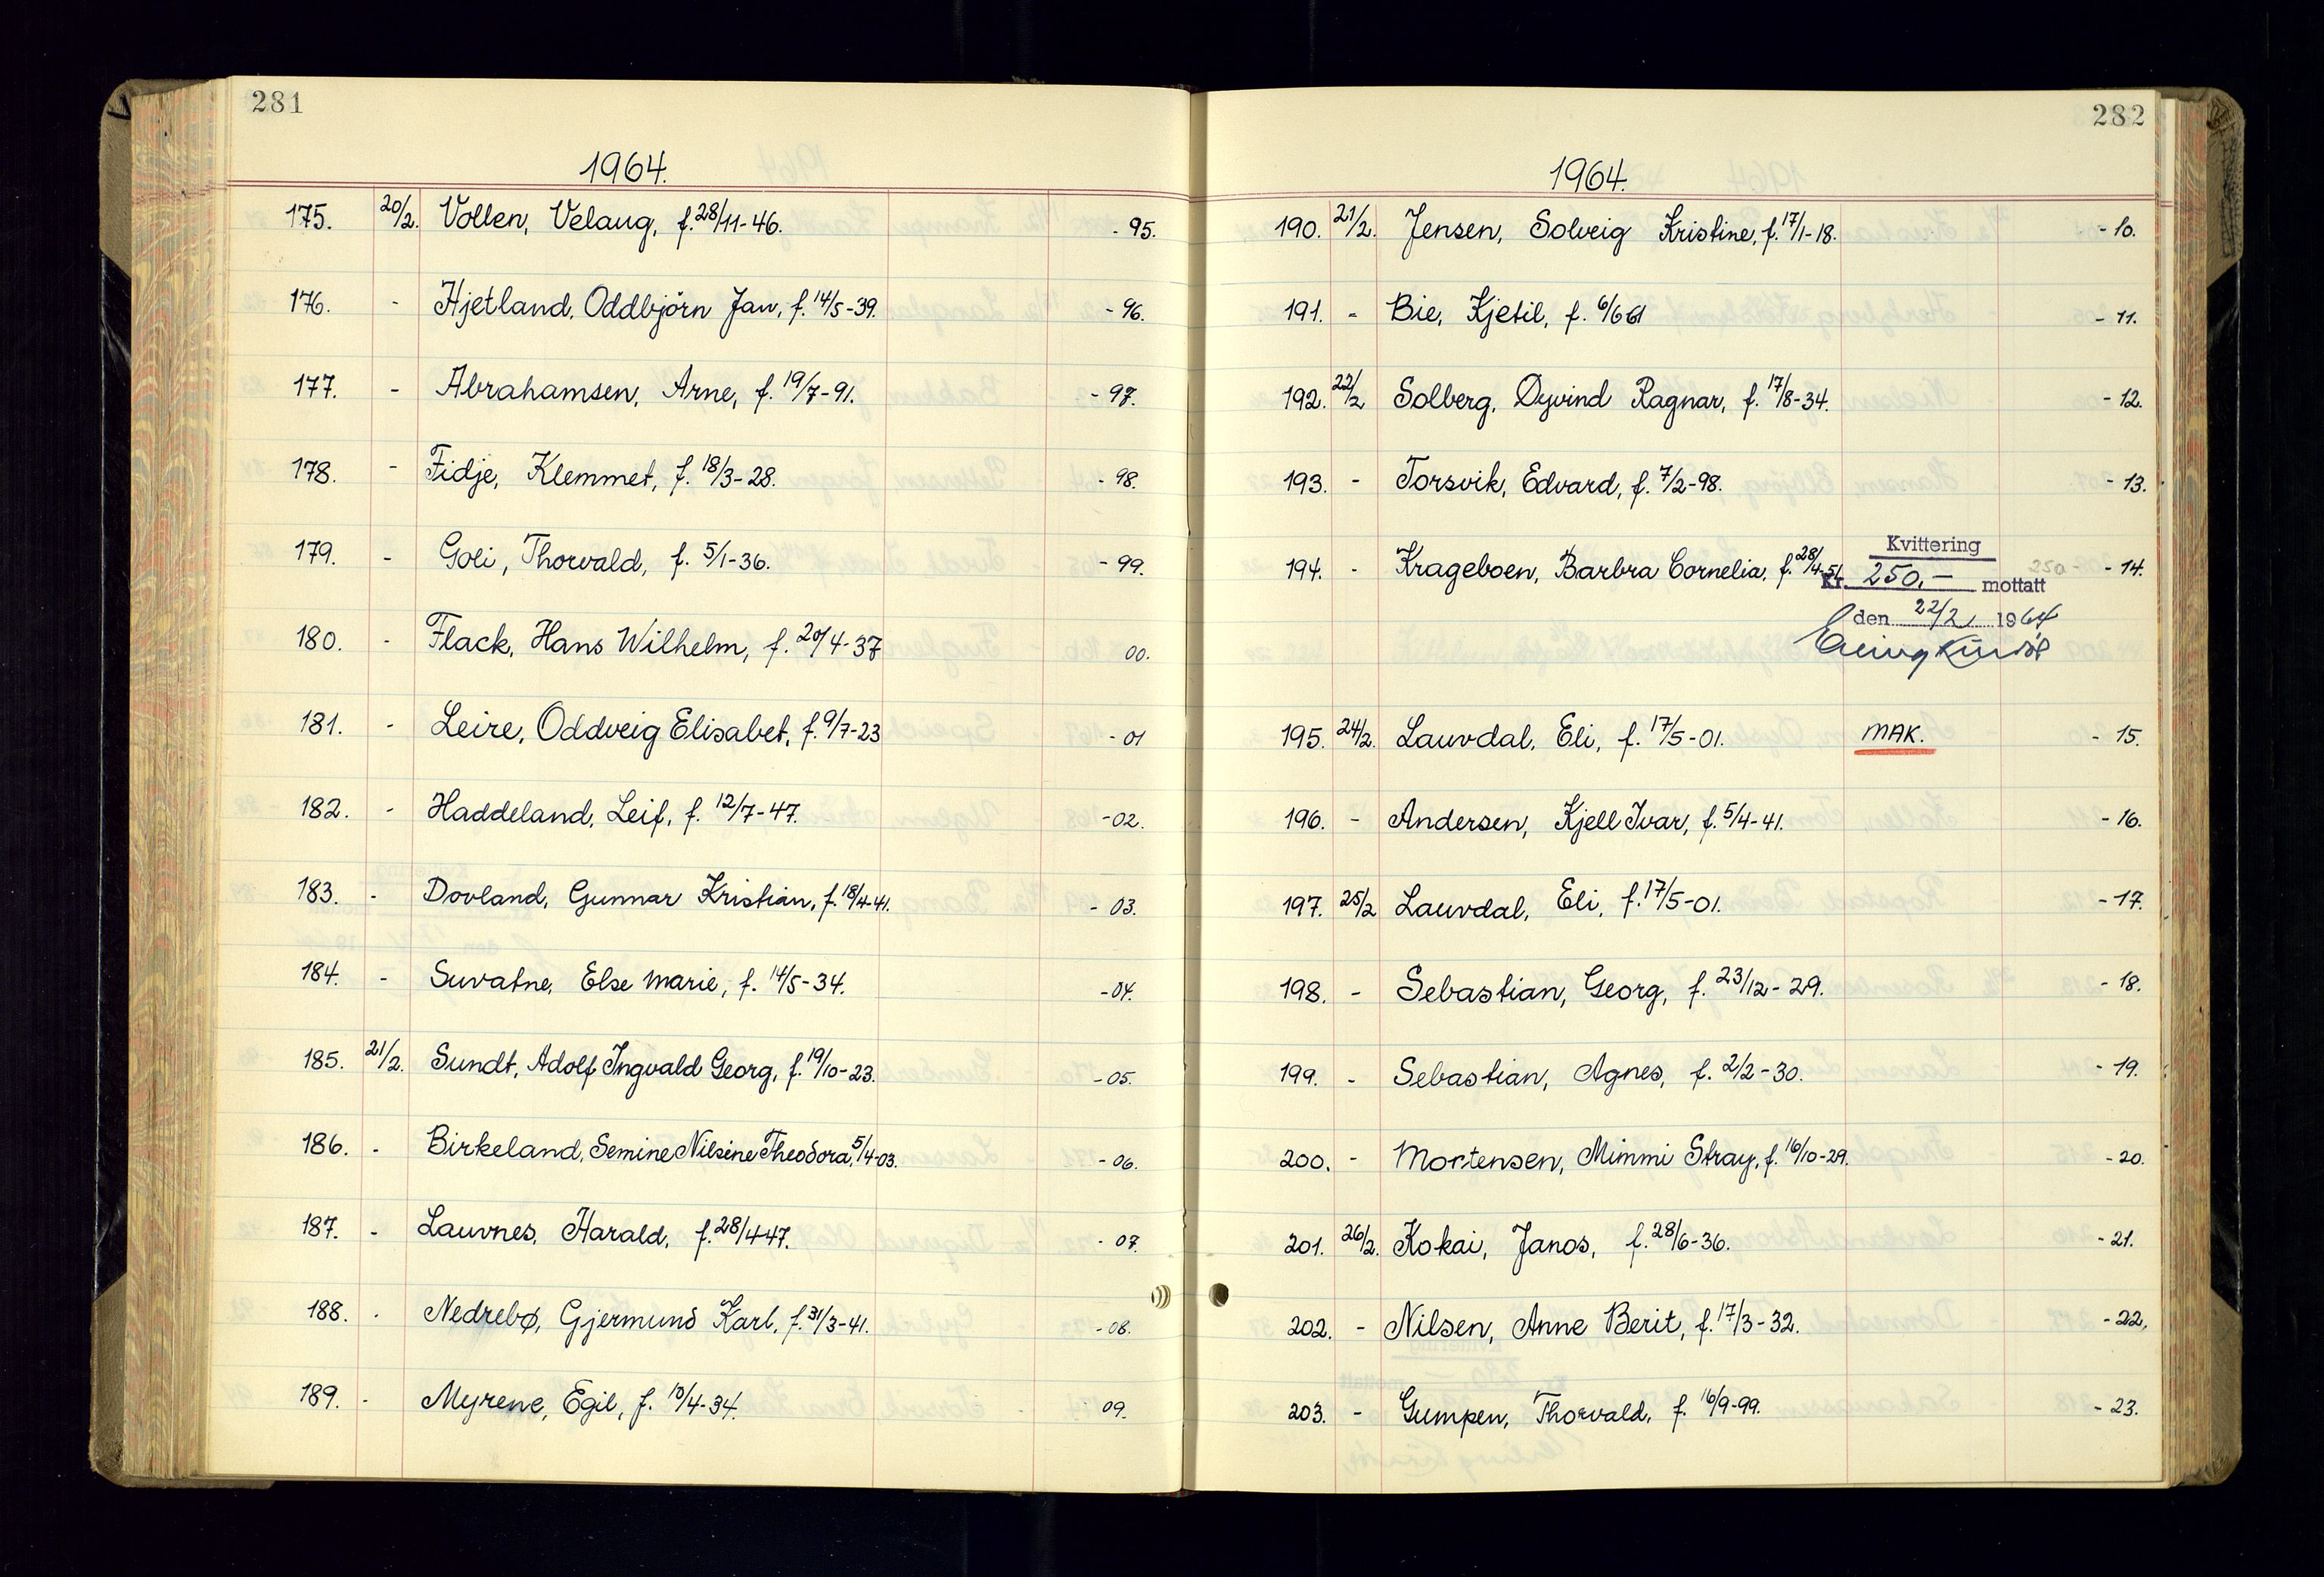 281
1964.
175. 20/2. Vollen, Velaug, f. 28/11-46. - 95.
176. - Hjetland, Oddbjörn Jan, f. 14/5-39. - 96.
177. - Abrahamsen, Arne, f. 19/7-91. - 97.
178. - Fidje, Klemmet, f. 18/3-28. - 98.
179. - Goli, Thorvald, f. 5/1-36. - 99.
180. - Flack, Hans Wilhelm, f. 20/4-37 00.
181. - Leire, Oddveig Elisabet, f. 9/7-23 - 01
182. - Haddeland, Leif, f. 12/7-47. - 02.
183. - Dovland, Gunnar Kristian, f. 18/4-41. - 03.
184. - Suvatne, Else Marie, f. 14/5-34. - 04.
185. 21/2. Sundt, Adolf Ingvald Georg, f. 19/10-23. - 05.
186. - Birkeland, Semine Nilsine Theodora, 5/4-03. - 06.
187. - Lauvnes, Harald, f. 28/4-47. - 07.
188. - Nedrebø, Gjermund Karl, f. 31/3-41. - 08.
189. - Myrene, Egil, f. 10/4-34. 09.
282
1964.
190. 21/2. Jensen, Solveig Kristine, f. 17/1-18. - 10.
191. - Bie, Kjetil, f. 6/6 61 - 11.
192. 22/2 Solberg, Øyvind Ragnar, f. 17/8-34. - 12.
193. - Torsvik, Edvard, f. 7/2-98. - 13.
Kvittering
194. - Krageboen, Barbra Cornelia, f. 28/4-51. 250 - 14.
Kr. 250,- mottatt
den 22/2 1964
195. 24/2. Lauvdal, Eli, f. 17/5-01. MAK. - 15.
196. - Andersen, Kjell Ivar, f. 5/4-41. - 16.
197. 25/2 Lauvdal, Eli, f. 17/5-01. - 17.
198. - Sebastian, Georg, f. 23/12-29. - 18.
199. - Sebastian, Agnes, f. 2/2-30. - 19.
200. - Mortensen, Mimmi Stray, f. 16/10-29. - 20.
201. 26/2. Kokai, Janos, f. 28/6-36. - 21.
202. - Nilsen, Anne Berit, f. 17/3-32. - 22.
203. - Gumpen, Thorvald, f. 16/9-99. - 23.